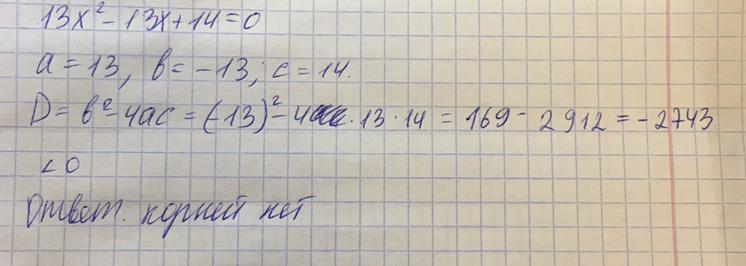 13x² - 13x + 14 = 0
a = 13; b = -13; c = 14.
D = b² - 4ac = (-13)² - 4 · 13 · 14 = 169 - 2912 = -2743
< 0
Ответ: корней нет